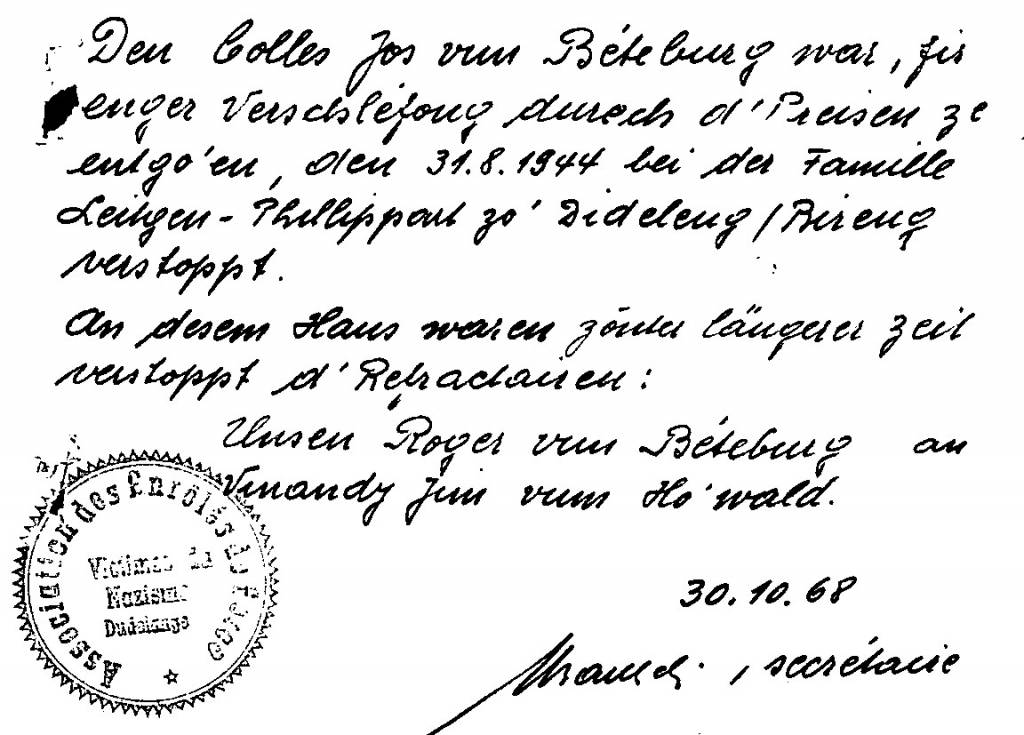 Den Colles Jos vum Béteburg war, fir
enger Verschlefong durech d'Preisen ze
entgo'en, den 31.8.1944 bei der Famille
Leitgen-Phillippart zo' Dideleng/Bireng
verstoppt.
An desem Haus waren zönter längerer Zeit
verstoppt d'Refractairen:
Unsen Roger vum Béteburg an
Vinandy Jim vum Ho'wald.
Association des Enrôlés de Force
Victimes du
Nazisme
Dudelange
30.10.68
, secrétaire